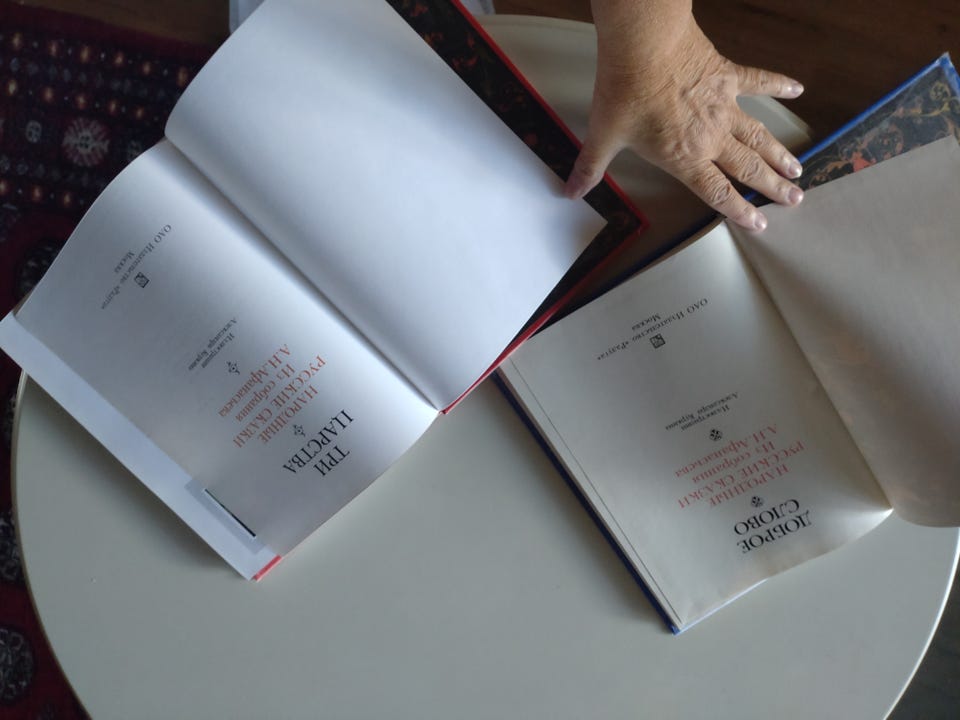 ТРИ
ЦАРСТВА
НАРОДНЫЕ
РУССКИЕ СКАЗКИ
Из собрания
А.Н.Афанасьева
Иллюстрации
Александра Куркина
ОАО Издательство «Радуга»
Москва
ДОБРОЕ
СЛОВО
НАРОДНЫЕ
РУССКИЕ СКАЗКИ
Из собрания
А.Н.Афанасьева
Иллюстрации
Александра Куркина
ОАО Издательство «Радуга»
Москва